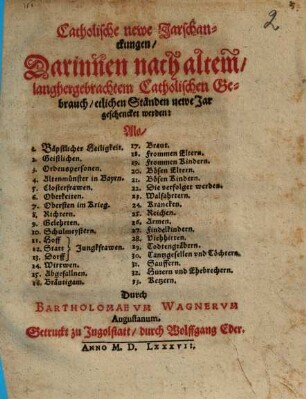 2
Catholische newe Jarschan-
ckungen/
Darinnen nach altem/
langhergebrachtem Catholischen Ge-
brauch/ etlichen Ständen newe Jar
geschencket werden:
Als/
1. Bäpstlicher Heiligkeit.
2. Geistlichen.
3. Ordenspersonen.
4. Altenmünster in Bayrn.
5. Closterfrawen.
6. Oberkeiten.
7. Obersten im Krieg.
8. Richtern.
9. Gelehrten.
10. Schulmeystern.
11. Hoff
12. Statt
13. Dorff
} Jungkfrawen.
14. Witwen.
15. Abgefallnen.
16. Bräutigam.
17. Braut.
18. Frommen Eltern.
19. Frommen Kindern.
20. Bösen Eltern.
21. Bösen Kindern.
22. Die verfolget werden.
23. Walfahrtern.
24. Krancken.
25. Reichen.
26. Armen.
27. Findelkindern.
28. Viehhirten.
29. Todtengräbern.
30. Tantzgesellen vnd Töchtern.
31. Sauffern.
32. Hurern vnd Ehebrechern.
33. Ketzern.
Durch
BARTHOLOMAEVM WAGNERVM
Augustanum.
Getruckt zu Ingolstatt/ durch Wolffgang Eder.
ANNO M. D. LXXXVII.